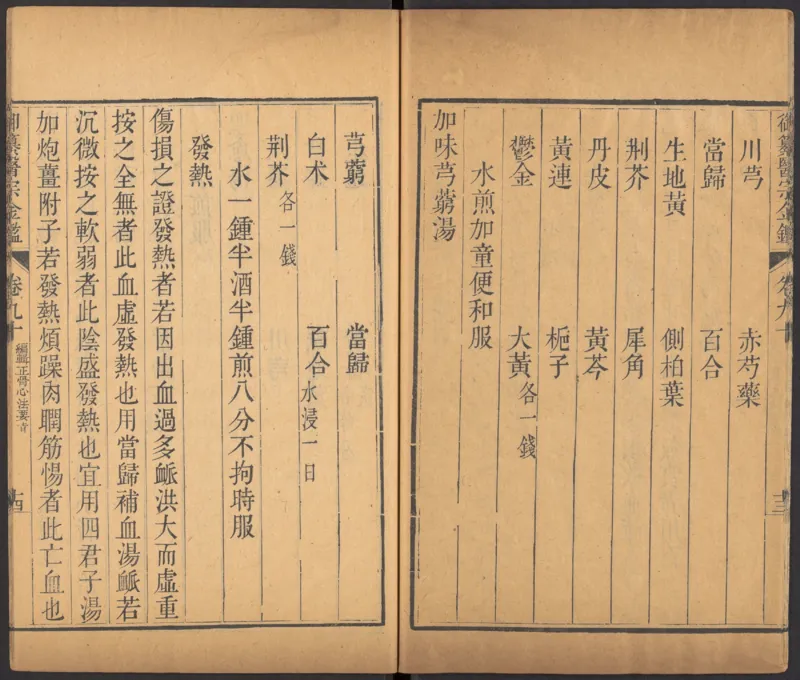 御纂醫宗金鑑
卷九十
十三
川芎 赤芍藥
當歸 百合
生地黃 側柏葉
荆芥 犀角
丹皮 黃芩
黃連 梔子
鬱金 大黃各一錢
水煎加童便和服
加味芎藭湯
芎藭 當歸
白术 百合水浸一日
荆芥各一錢
水一鍾半酒半鍾煎八分不拘時服
發熱
傷損之證發熱者若因出血過多衇洪大而虛重
按之全無者此血虛發熱也用當歸補血湯衇若
沉微按之軟弱者此陰盛發熱也宜用四君子湯
加炮薑附子若發熱煩躁肉瞤筋惕者此亡血也
御纂醫宗金鑑
卷九十
編輯正骨心法要旨
十四